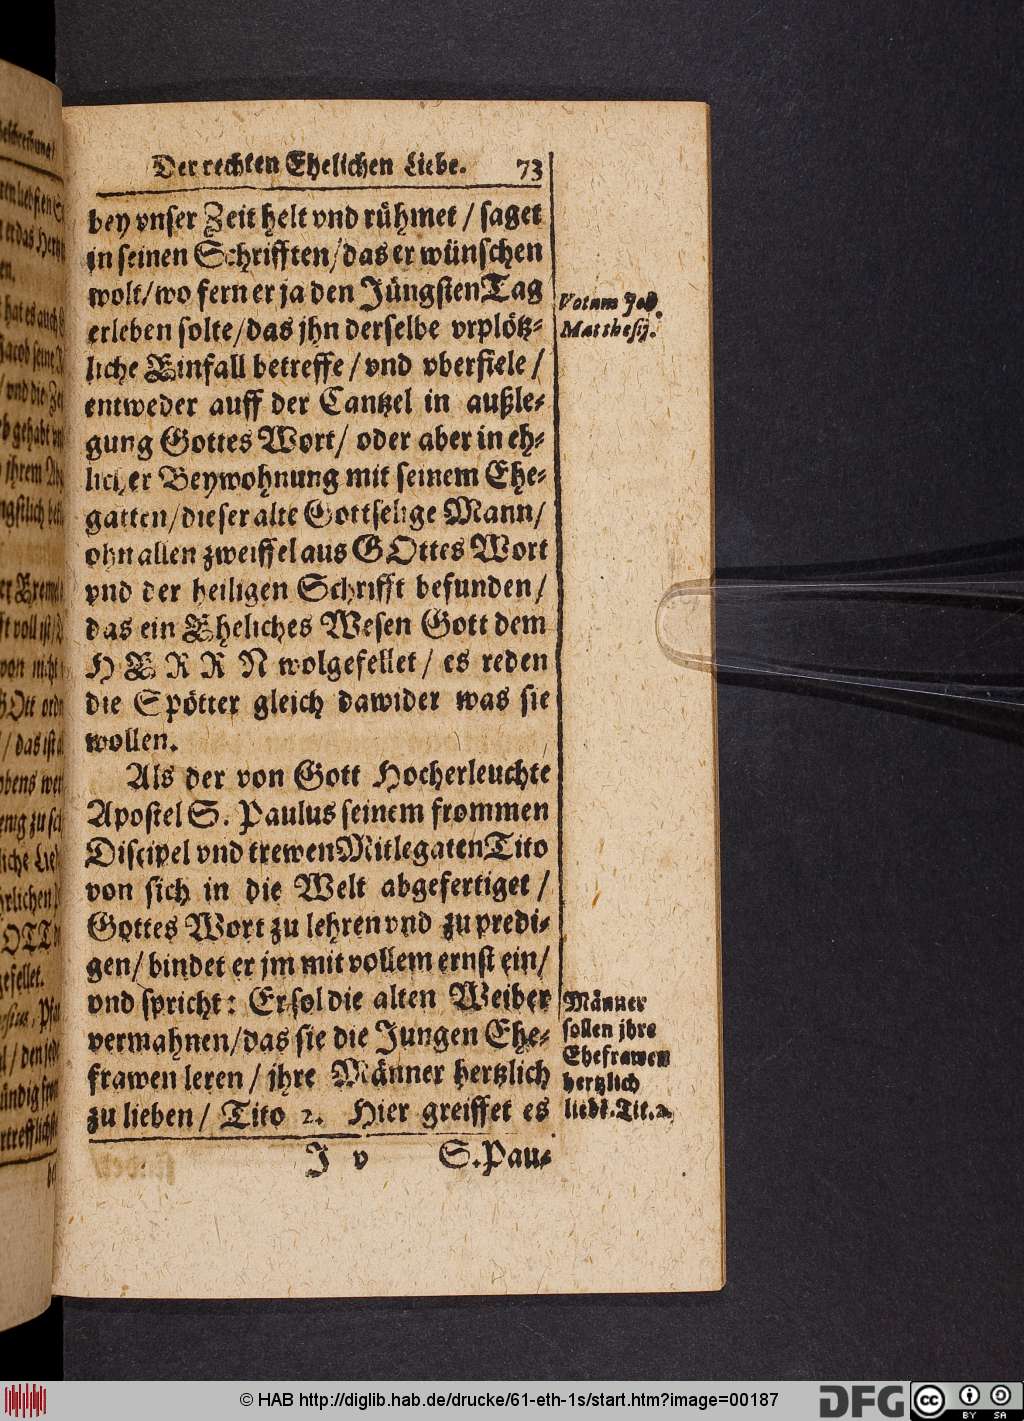 Der rechten Ehelichen Liebe. 73
bey vnser Zeit helt vnd rühmet / saget
in seinen Schrifften/das er wünschen
wolt/wo fern er ja den Jüngsten Tag
erleben solte/das jhn derselbe vrplötz-
liche Einfall betreffe / vnd vberfiele /
entweder auff der Cantzel in außle-
gung Gottes Wort/ oder aber in eh-
licher Beywohnung mit seinem Ehe-
gatten/dieser alte Gottselige Mann/
ohn allen zweiffel aus GOttes Wort
vnd der heiligen Schrifft befunden/
das ein Eheliches Wesen Gott dem
HERRN wolgefellet/ es reden
die Spötter gleich dawider was sie
wollen.
Als der von Gott Hocherleuchte
Apostel S. Paulus seinem frommen
Discipel vnd trewen Mitlegaten Tito
von sich in die Welt abgefertiget /
Gottes Wort zu lehren vnd zu predi-
gen/ bindet er jm mit vollem ernst ein/
vnd spricht: Er sol die alten Weiber
vermahnen/das sie die Jungen Ehe-
frawen leren / jhre Männer hertzlich
zu lieben/ Tito 2. Hier greiffet es
J v S.Pau-
Votum Joh.
Matthesij.
Männer
sollen jhre
Ehefrawen
hertzlich
liebē.Tit.2.
© HAB http://diglib.hab.de/drucke/61-eth-1s/start.htm?image=00187
DFG
cc
BY SA